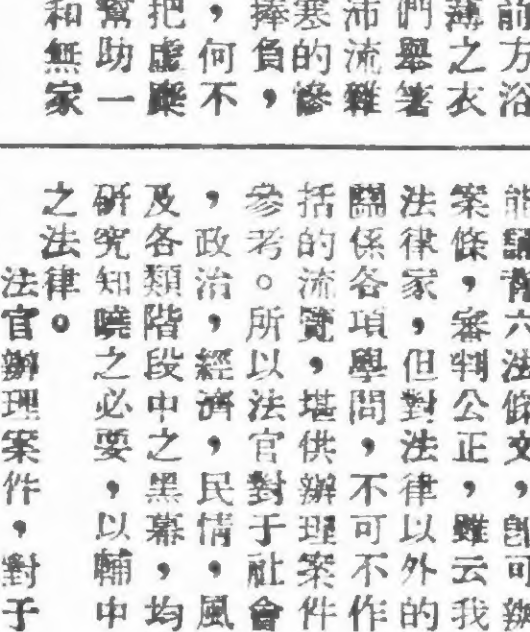 前方浴
薄之衣
們舉箸
沛流離
寒的慘
捧負,
,何不
把虛糜
幫助一
和無家
能背六法條文,即可辦
案條,審判公正,雖云我
法律家,但對法律以外的
關係各項學問,不可不作
括的流覽,堪供辦理案件
參考。所以法官對于社會
,政治,經濟,民情,風
及各類階段中之黑幕,均
研究知曉之必要,以輔中
之法律。
法官辦理案件,對于